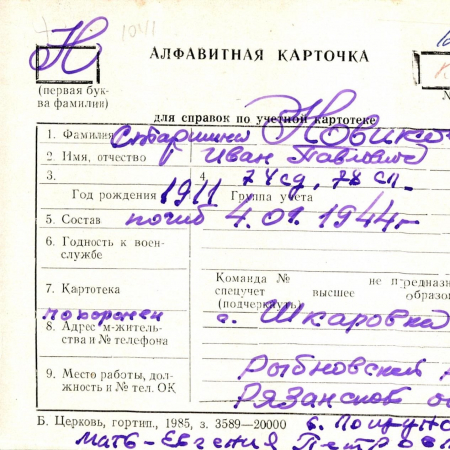 Н
1041
АЛФАВИТНАЯ КАРТОЧКА
(первая бук-
ва фамилии)
для справок по учетной картотеке
1. Фамилия Старшина Новико
2. Имя, отчество Иван Павлович
3. 4. 74 сд, 78 сп
Год рождения 1911 Группа учета
5. Состав погиб 4.01.1944г
6. Годность к воен-
службе
Команда № не предназ
7. Картотека спецучет высшее образо
(подчеркнуть)
похоронен с. Шкаровка
8. Адрес м-житель-
ства и № телефона
Рыбновский
9. Место работы, дол-
жность и № тел. ОК
Рязанской о
Б. Церковь, гортип., 1985, з. 3589—20000
мать-Евгения Петров